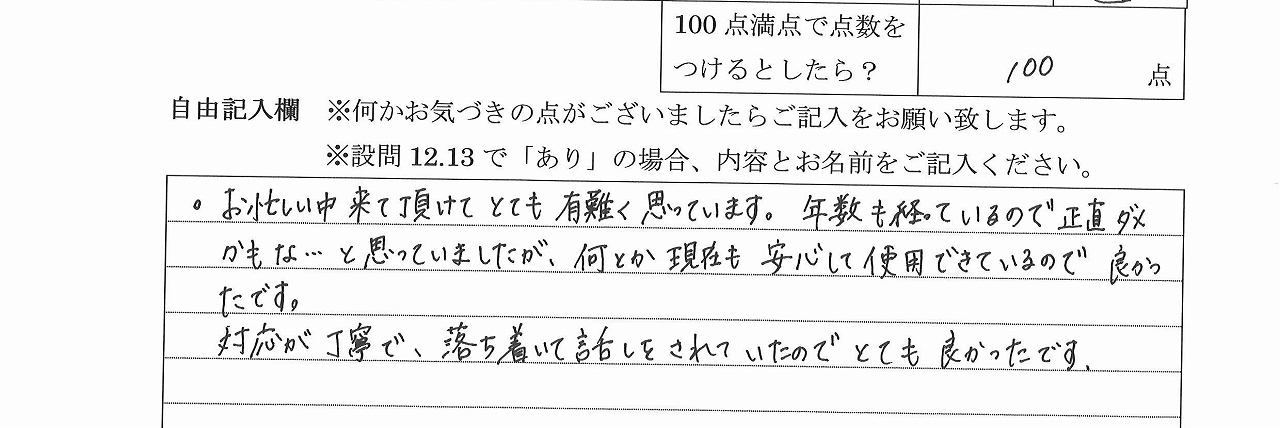 100点満点で点数を
つけるとしたら？
100 点
自由記入欄 ※何かお気づきの点がございましたらご記入をお願い致します。
※設問12.13で「あり」の場合、内容とお名前をご記入ください。
。お忙しい中来て頂けてとても有難く思っています。年数も経っているので正直ダメ
かもな…と思っていましたが、何とか現在も安心して使用できているので良かっ
たです。
対応が丁寧で、落ち着いて話しをされていたのでとても良かったです、